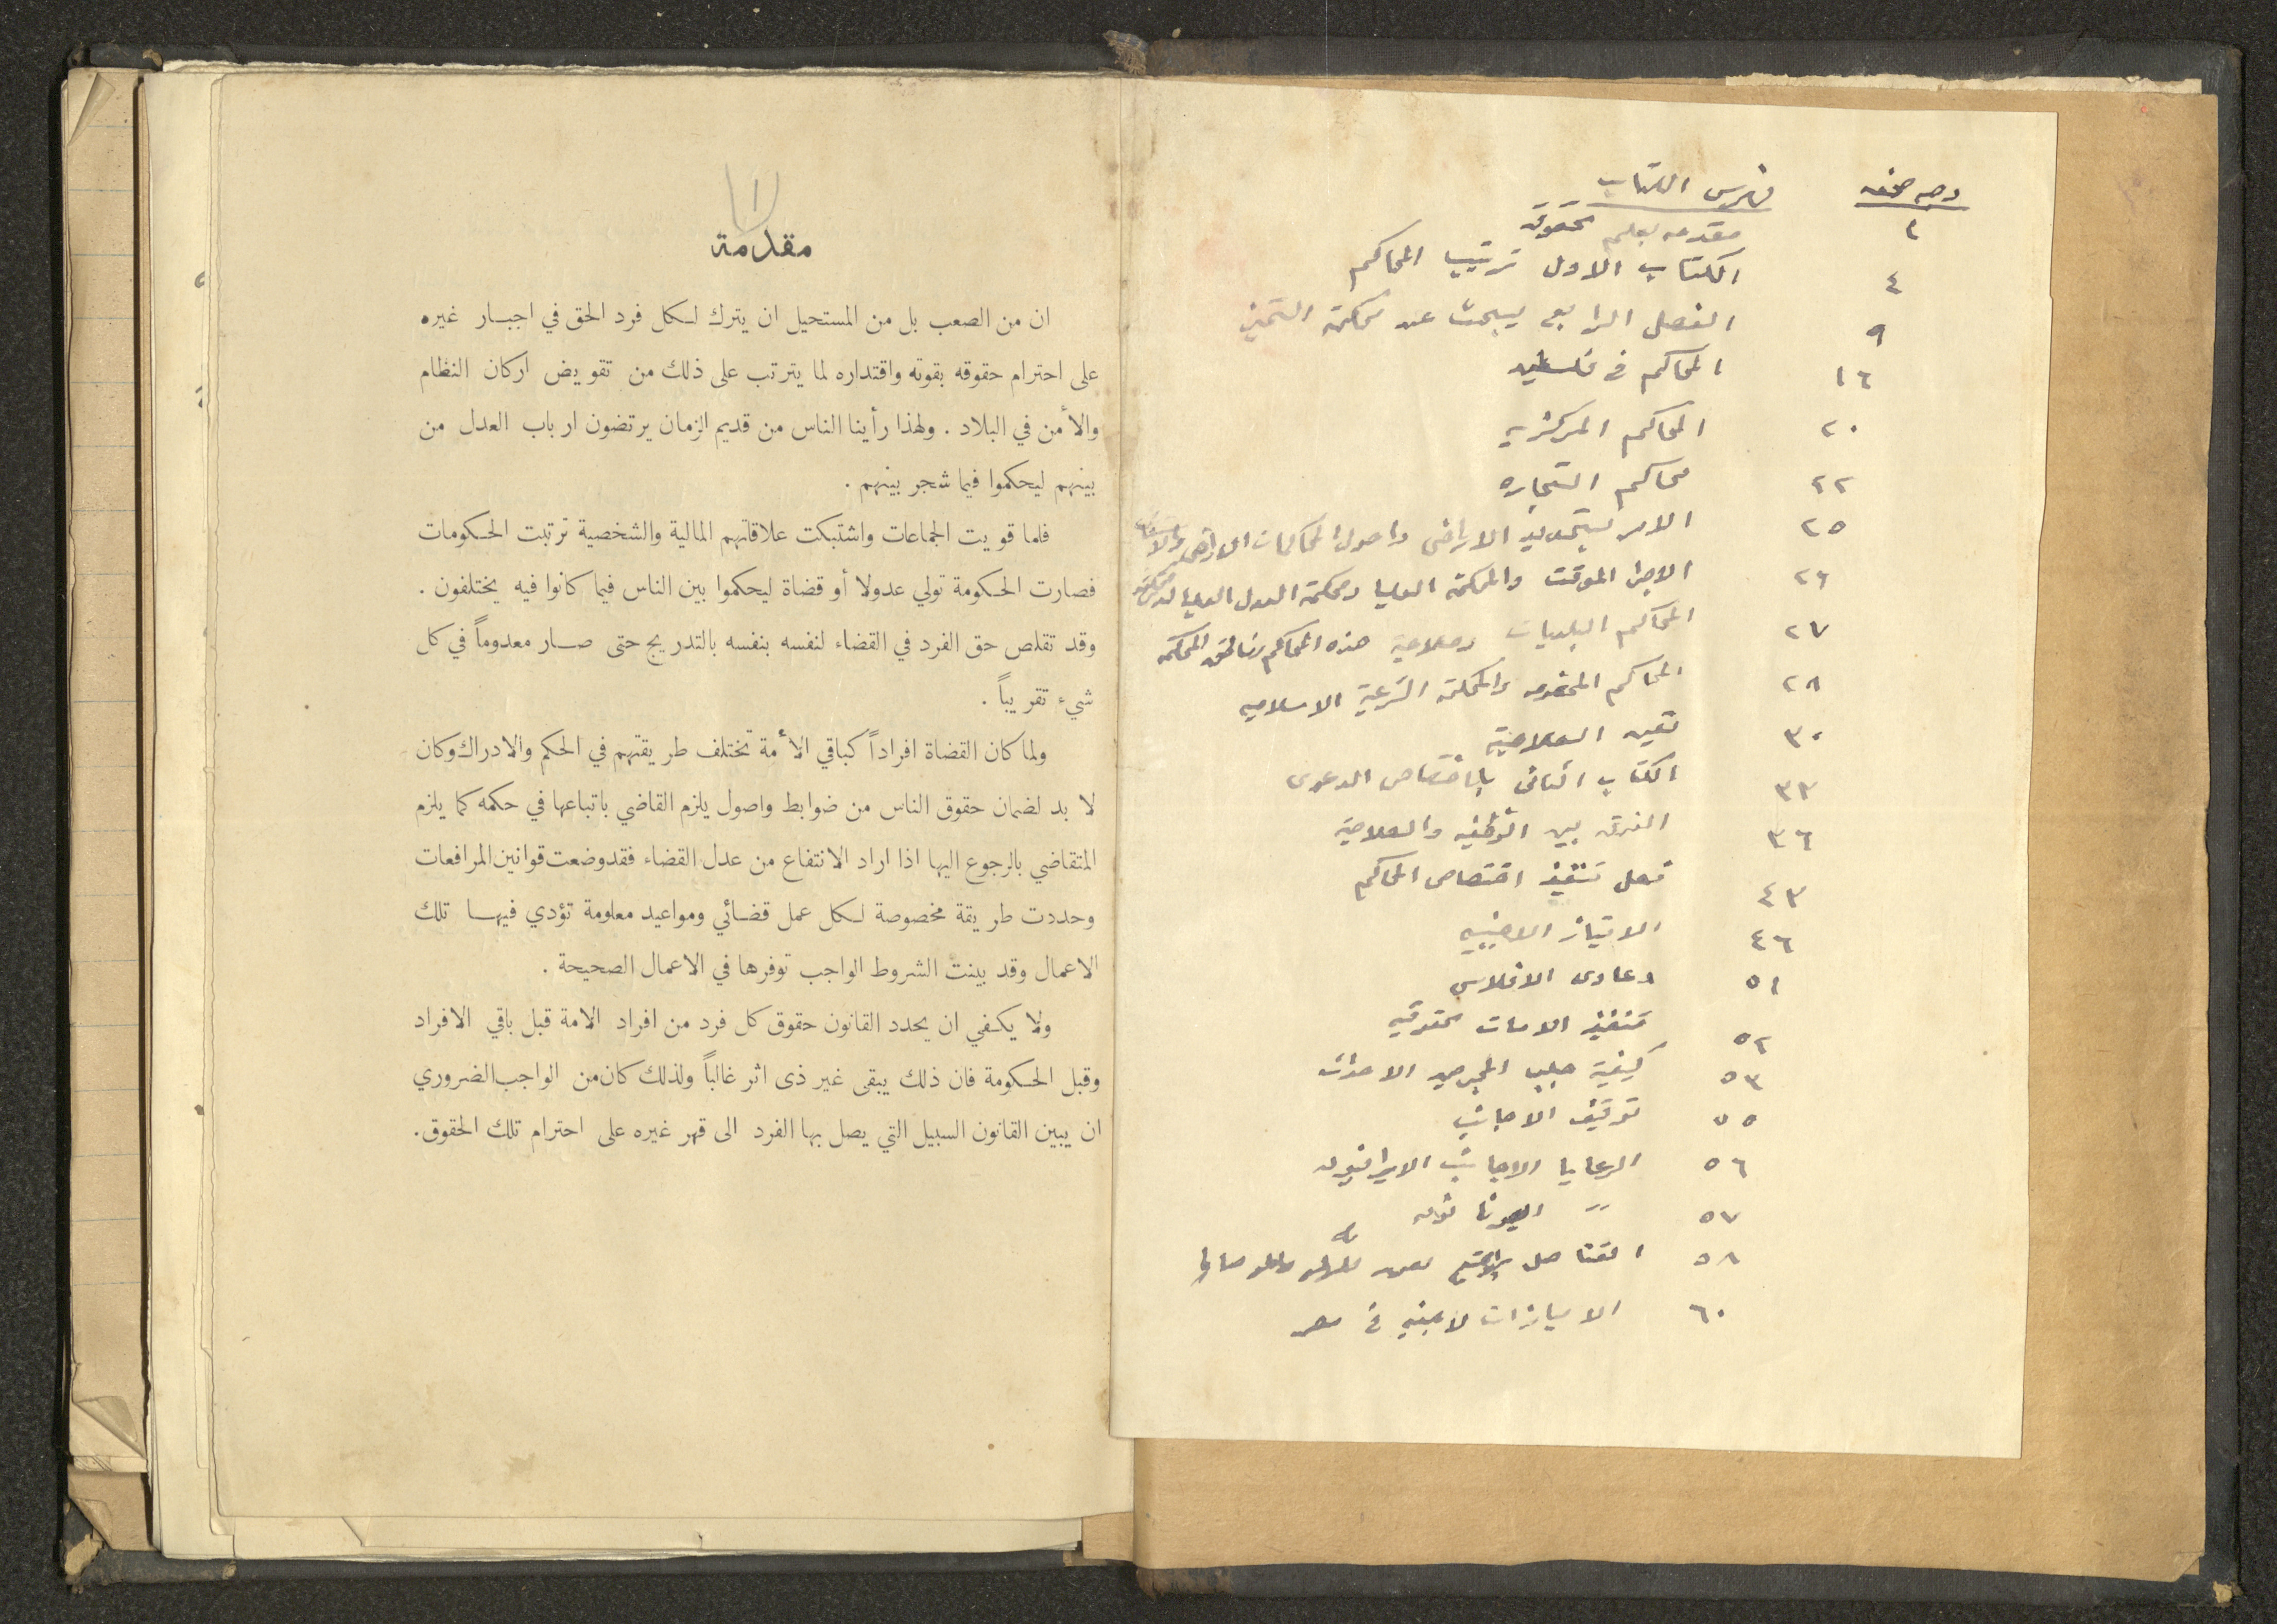 وجه صحيفه فهرس الكتاب
١ مقدمه بعلم حقوق
٤ الكتاب الاول ترتيب المحاكم
٩ الفصل الرابع يبحث عن محكمة التميز
١٦ المحاكم في فلسطين
٢٠ المحاكم المركزيه
٢٢ محاكم التجاره
٢٥ الامر بتحديد الاراضي واصول المحاكمات الاراضي
٢٦ الاجرا الموقت والمحكمة العليا ومحكمة العدل العليا
٢٧ المحاكم البلديات وصلاحية هذه المحاكم
٢٨ المحاكم المخصوصه والمحكمة الشرعية الاسلاميه
٣٠ تعين الصلاحية
٣٣ الكتاب الثاني باختصاص الدعوى
٣٦ الفرق بين الوظيفه والصلاحية
٤٣ فصل تنفيذ اختصاص المحاكم
٤٦ الامتياز الاجنبيه
٥١ دعاوى الافلاس
٥٢ تنفيذ حقوقيه
٥٣ كيفية جلب المجرمين
٥٥ توقيف الاجانب
٥٦ الرعايا الاجانب الايرانيون
٥٧〃 اليونا نون
٥٨ القناصل
٦٠ الامتيازات لاجنبيه في مصر
١
مقدمة
ان من الصعب بل من المستحيل ان يترك لكل فرد الحق في اجبار غيره
على احترام حقوقه بقوته واقتداره لما يترتب على ذلك من تقويض اركان النظام
والأمن في البلاد . ولهذا رأينا الناس من قديم الزمان يرتضون ارباب العدل من
بينهم ليحكموا فيما شجر بينهم .
فلما قويت الجماعات واشتبكت علاقاتهم المالية والشخصية ترتبت الحكومات
فصارت الحكومة تولي عدولا أو قضاة ليحكموا بين الناس فيما كانوا فيه يختلفون .
وقد تقلص حق الفرد في القضاء لنفسه بنفسه بالتدريج حتى صار معدوماً في كل
شيء تقريباً .
ولما كان القضاة افراداً كباقي الأمة تختلف طريقتهم في الحكم والادراك وكان
لا بد لضمان حقوق الناس من ضوابط واصول يلزم القاضي باتباعها في حكمه كما يلزم
المتقاضي بالرجوع اليها اذا اراد الانتفاع من عدل القضاء فقد وضعت قوانين المرافعات
وحددت طريقة مخصوصة لكل عمل قضائي ومواعيد معلومة تؤدي فيها تلك
الاعمال وقد بينت الشروط الواجب توفرها في الاعمال الصحيحة .
ولا يكفي ان يحدد القانون حقوق كل فرد من افراد الامة قبل باقي الافراد
وقبل الحكومة فان ذلك يبقى غير ذى اثر غالباً ولذلك كان من الواجب الضروري
ان يبين القانون السبيل التي يصل بها الفرد الى قهر غيره على احترام تلك الحقوق.